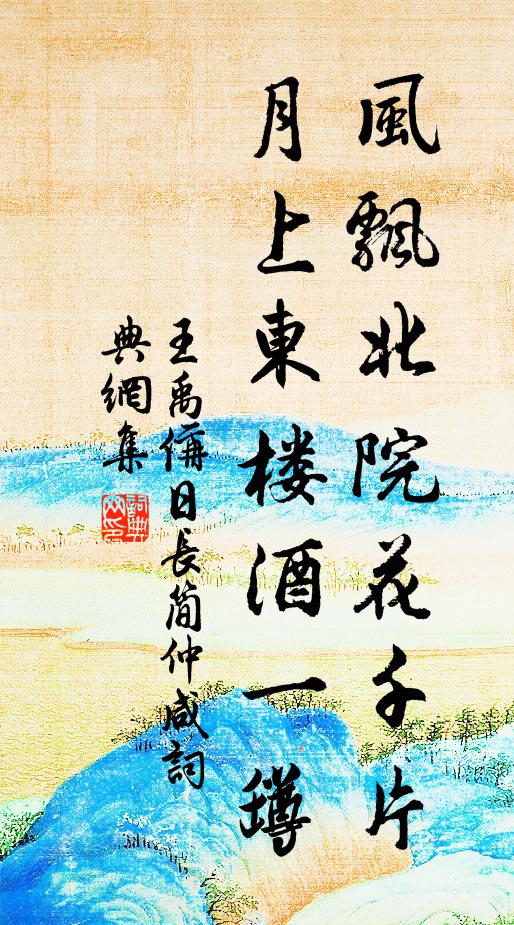 風飄北院花千片
月上東楼酒一罇
王禹偁日長简仲咸詞
典網集
詞典